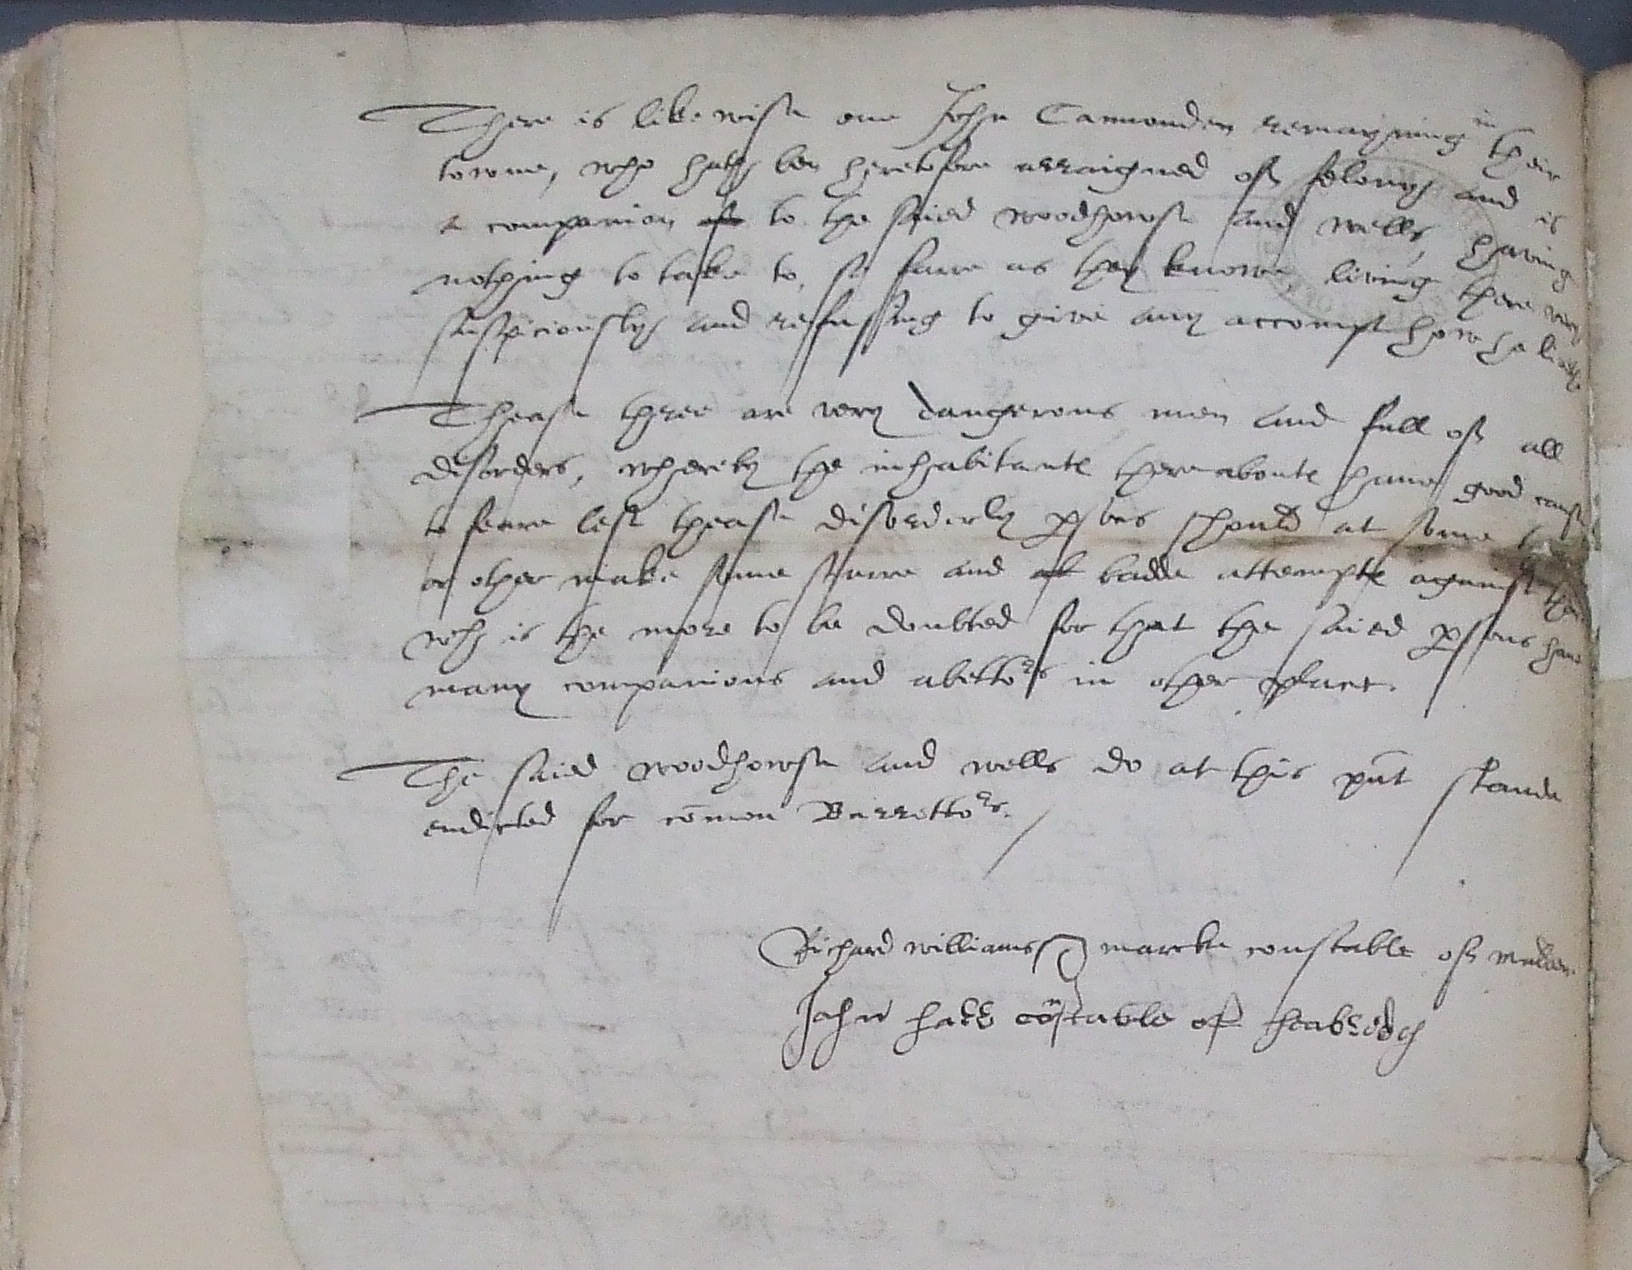 There is likewise one John Cammonden remayning in their
towne, who hath ben heretofore arraigned of felony and is
a companion of to the saied woodhowse and wells, having
nothing to take to, so farre as they knowe, living there very
suspiciously and refussing to give any accompt how he liveth
Thease three are very dangerous men and full of all
disorders, whereby the inhabitantes thereaboutes have good cause
to feare lest thease disorderly psons should at some
or other make some sturre and at badde attemptes against
wch is the more to be doubted for that the saied psons have
many companions and abettors in other places.
The saied woodhowse and wells do at this pnt stande
endicted for comon Barrettors.
Richard williams marcke constable of
John hall constable of